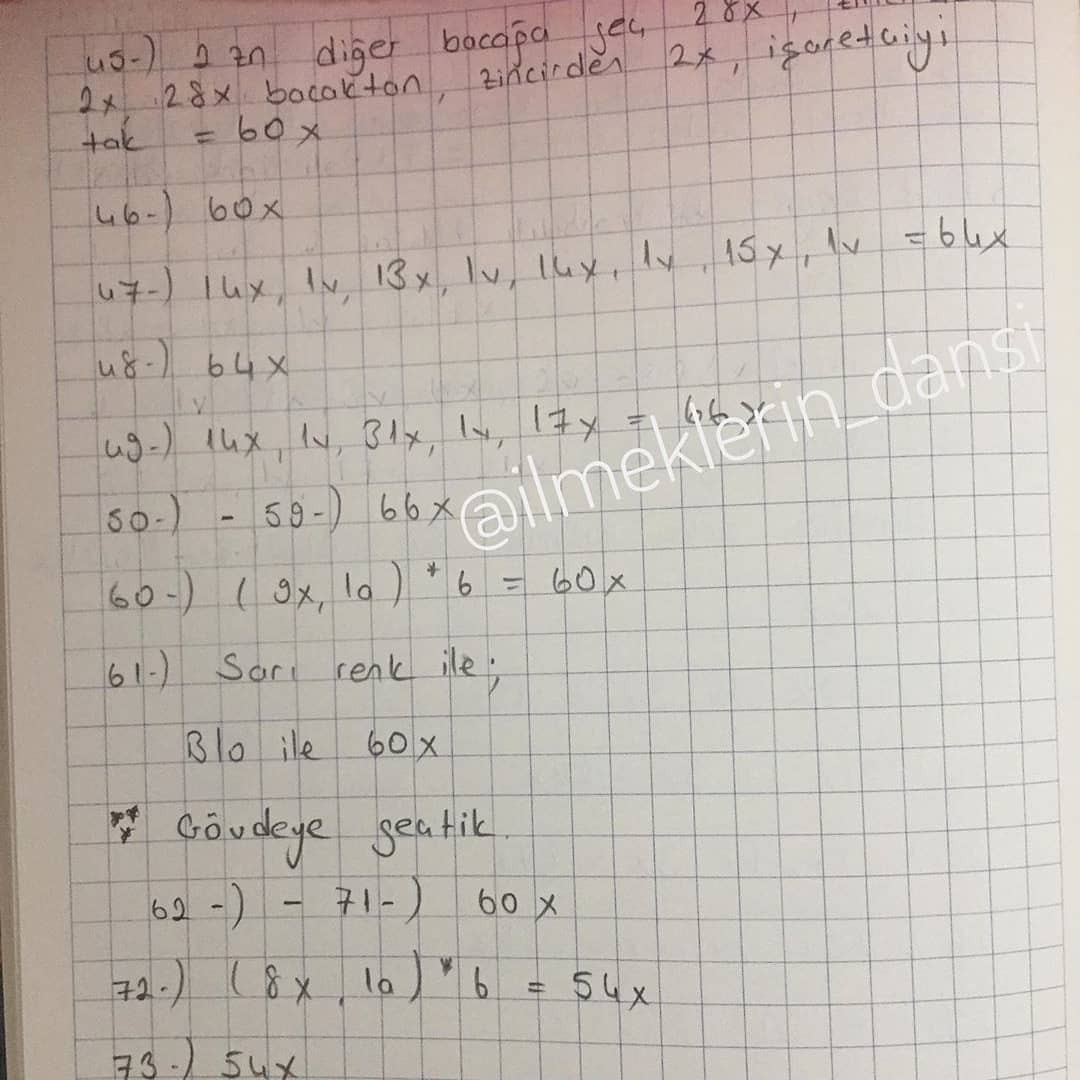 45-) 2 zn diğer bacağa geç 28x,
2x 28x bacaktan, zincirden 2x, işaretçiyi
tak = 60x
46-) 60x
47-) 14x, 1v, 13x, 1v, 14x, 1v, 15x, 1v = 64x
48-) 64x
49-) 14x, 1v, 31x, 1v, 17x = 66x
@ilmeklerin_dansi
50-) - 59-) 66x
60-) (9x, 1a) * 6 = 60x
61-) Sarı renk ile;
Blo ile 60x
*** Gövdeye geçtik.
62-) - 71-) 60x
72-) (8x, 1a) * 6 = 54x
73-) 54x